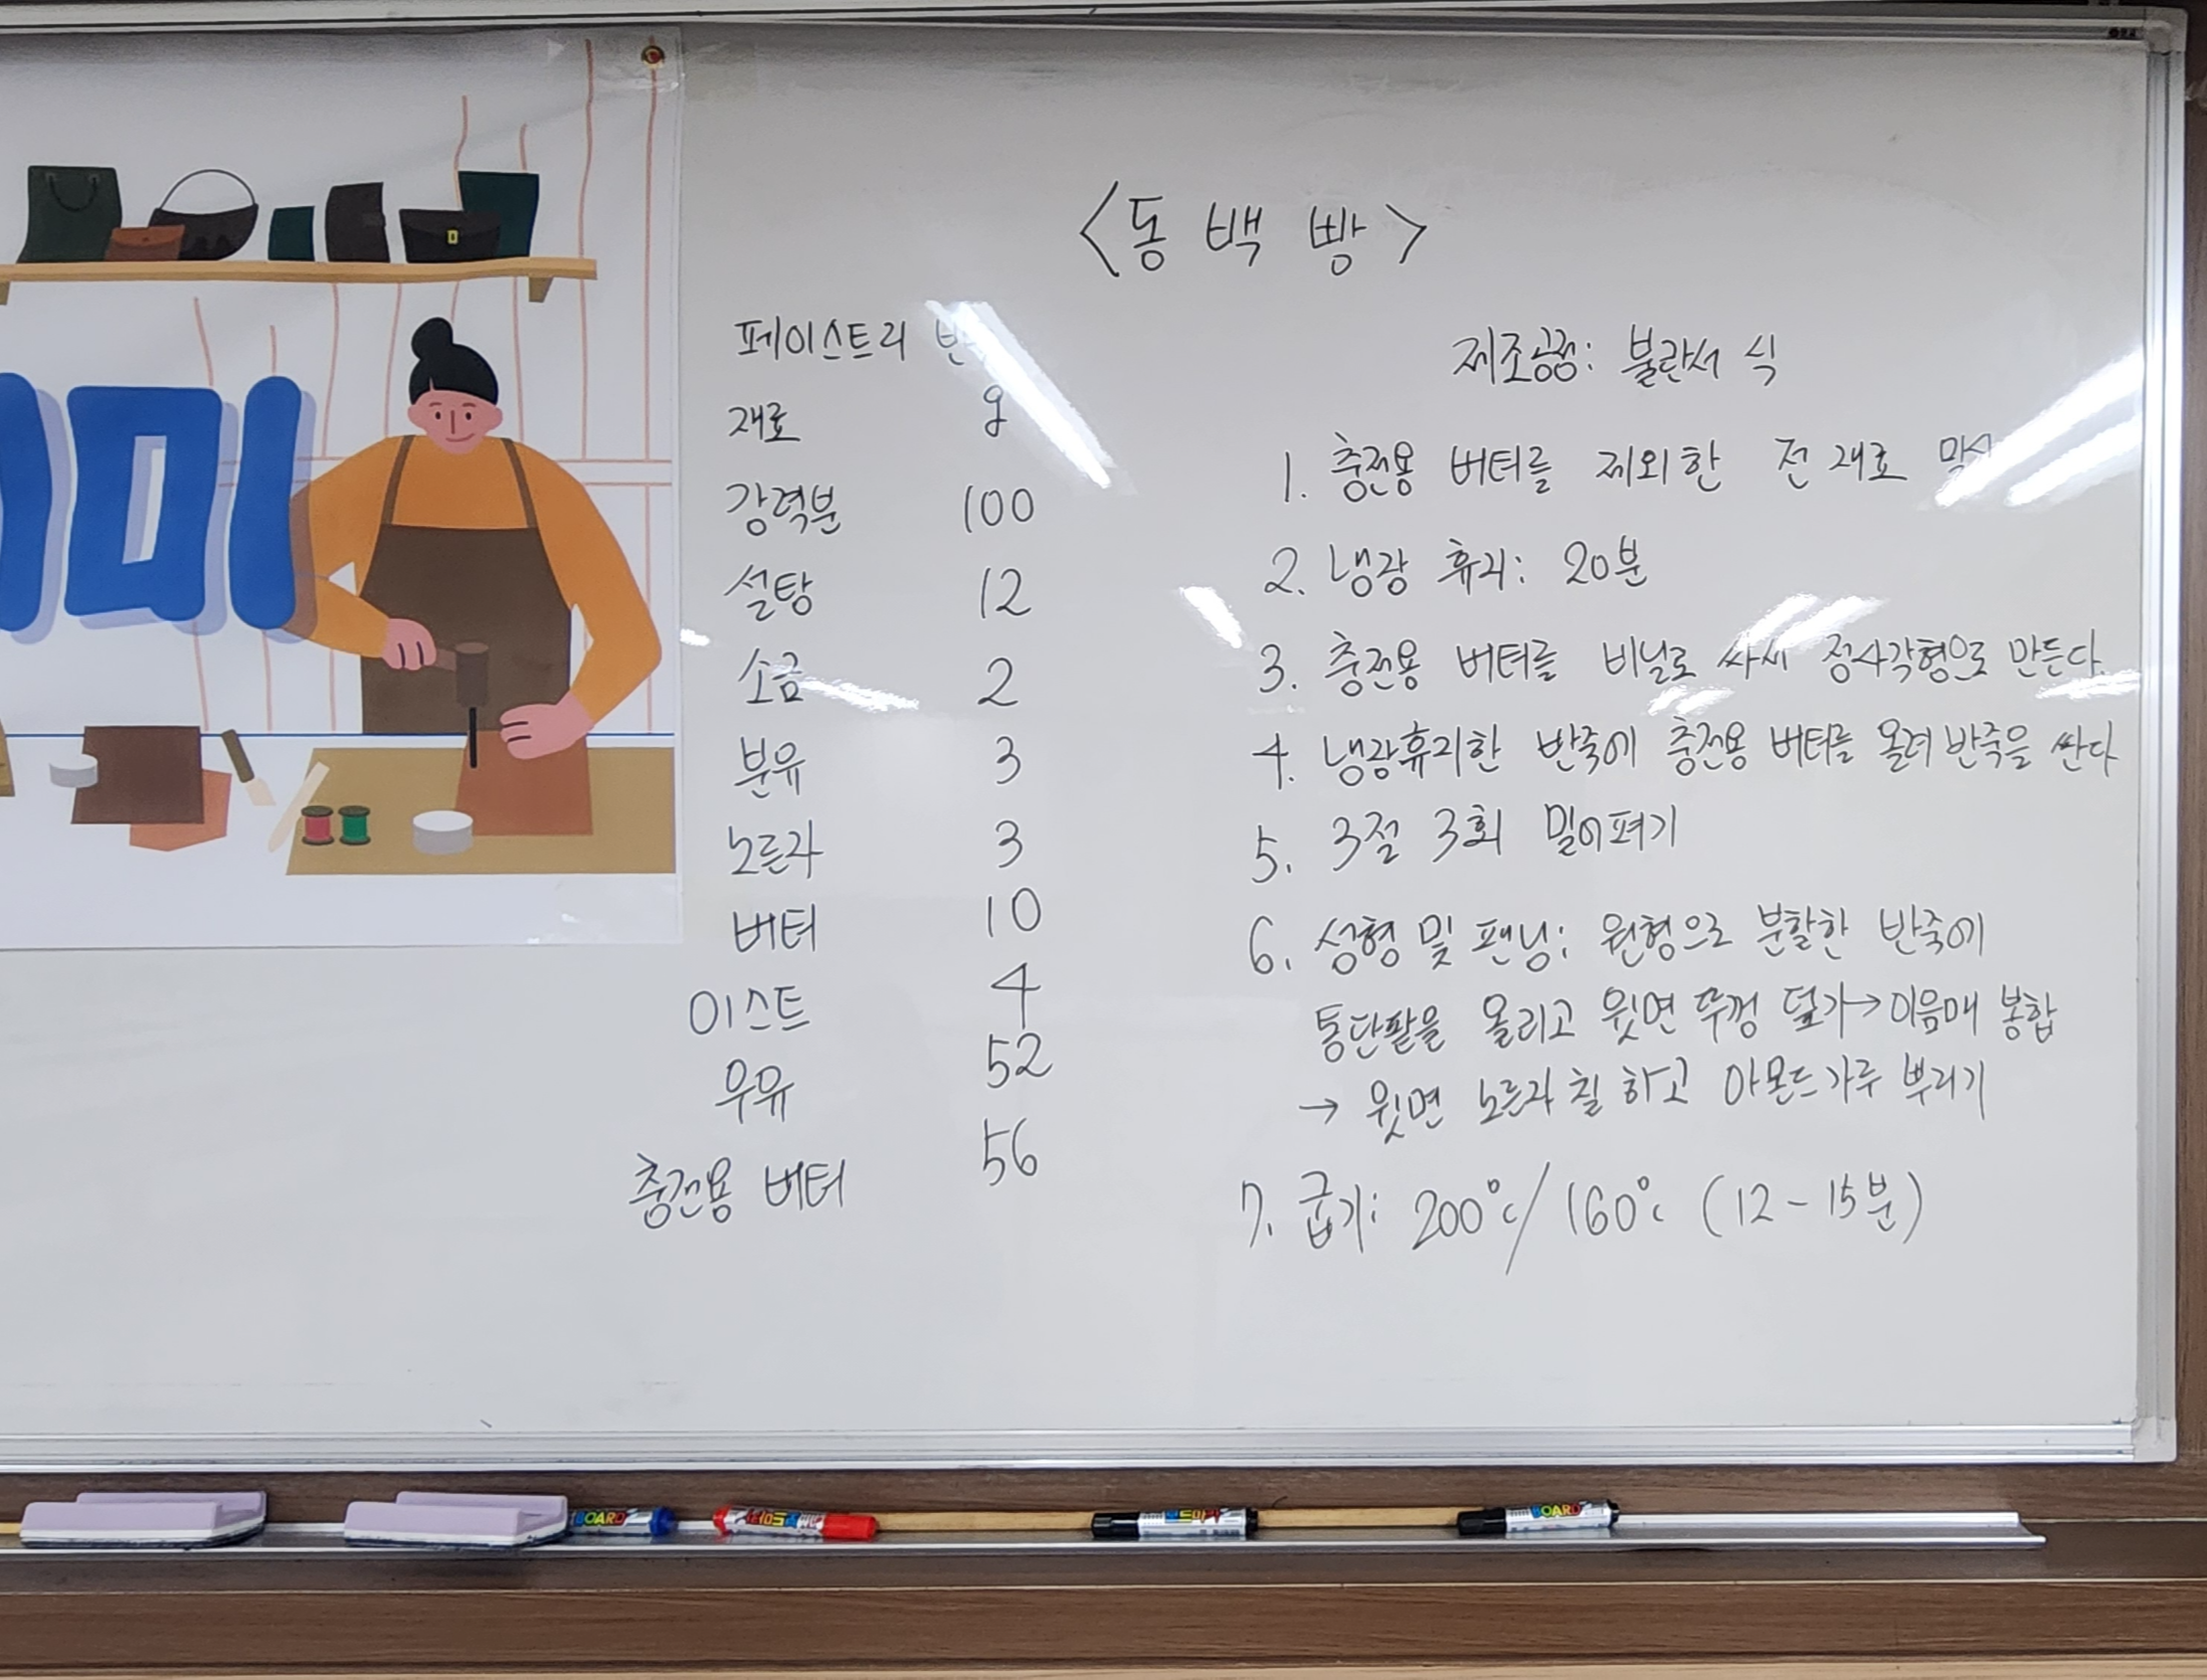 <동백빵>
페이스트리
재료 g
강력분 100
설탕 12
소금 2
분유 3
노른자 3
버터 10
이스트 4
우유 52
충전용 버터 56
제조공정: 불란서 식
1. 충전용 버터를 제외한 전 재료
2. 냉장 휴지: 20분
3. 충전용 버터를 비닐로 싸서 정사각형으로 만든다.
4. 냉장휴지한 반죽에 충전용 버터를 올려 반죽을 싼다
5. 3절 3회 밀어펴기
6. 성형 및 팬닝: 원형으로 분할한 반죽에
통단팥을 올리고 윗면 뚜껑 덮가→이음매 봉합
→ 윗면 노른자 칠 하고 아몬드가루 뿌리기
7. 굽기: 200℃/160℃ (12-15분)
미
BOARD
보드마카
BOARD